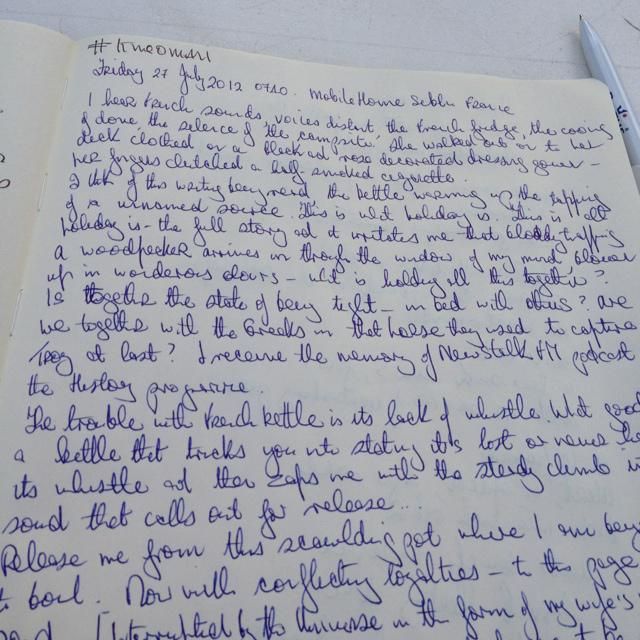 Friday 27 July 2012 0710. Mobile Home Sablu France
I hear French sounds, voices distant, the French fridge, the cooing
of dove the silence of the campsite. She walked out on to her
deck clothed in a black and rose decorated dressing gown –
her fingers clutched a half smoked cigarette.
I think of this writing being read the kettle warming up the tapping
of a unnamed source. This is what holiday is. This is all
holiday is – the full story and it irritates me that bloody tapping
a woodpecker arrives in through the window of my mind, blown
up in wonderous colours – what is holding all this together?
Is together the state of being tight – in bed with others? are
we together with the Greeks in that horse they used to capture
Troy at last? I receive the memory of Newstalk FM podcast
the History programme.
The trouble with French kettle is its lack of whistle. What good
a kettle that tricks you into stating it's lost or never had
its whistle and then zaps me with the steady climb in
sound that calls out for release...
Release me from this scaulding pot where I am
to boil. Now with conflicting loyalties – to this page
Interrupted by the Universe in the form of my wife's